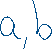 a, b